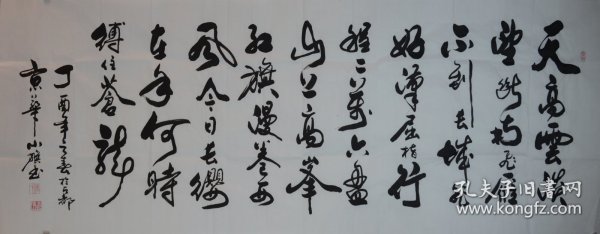 天高雲淡
望斷南飛雁
不到長城非
好漢屈指行
程二萬六盤
山上高峰
紅旗漫卷西
風今日長纓
在手何時
縛住蒼龍
丁酉年於古都
京華小雄書
孔夫子旧书网
www.kongfz.com